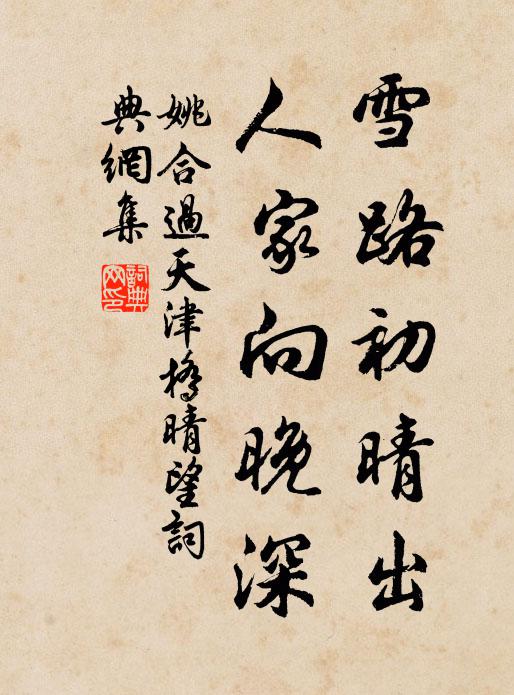 雪路初晴出
人家向晚深
姚合過天津橋晴望詞
典網集
詞典網印